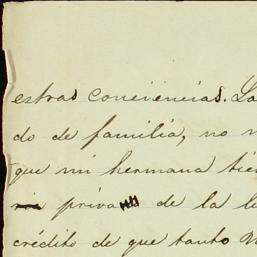 estras conciencias. La
do de familia, no
que mi hermana tie
priva de la
crédito de que tanto